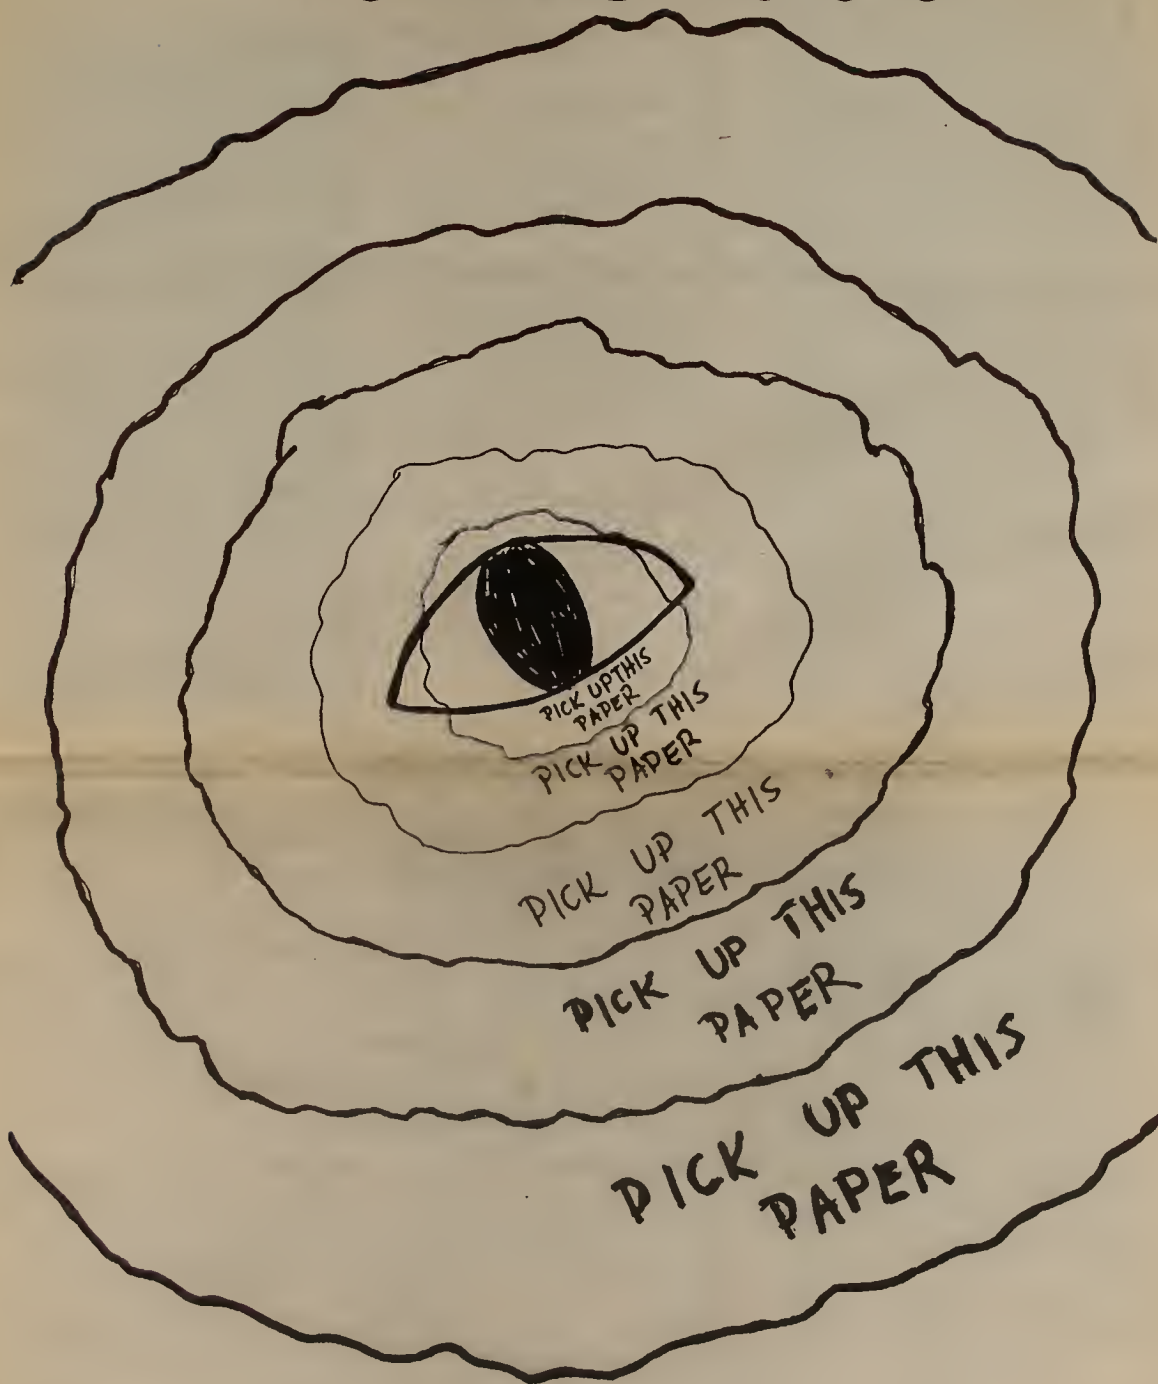 PICK UP THIS
PAPER
PICK UP THIS
PAPER
PICK UP THIS
PAPER
PICK UP THIS
PAPER
PICK UP THIS
PAPER